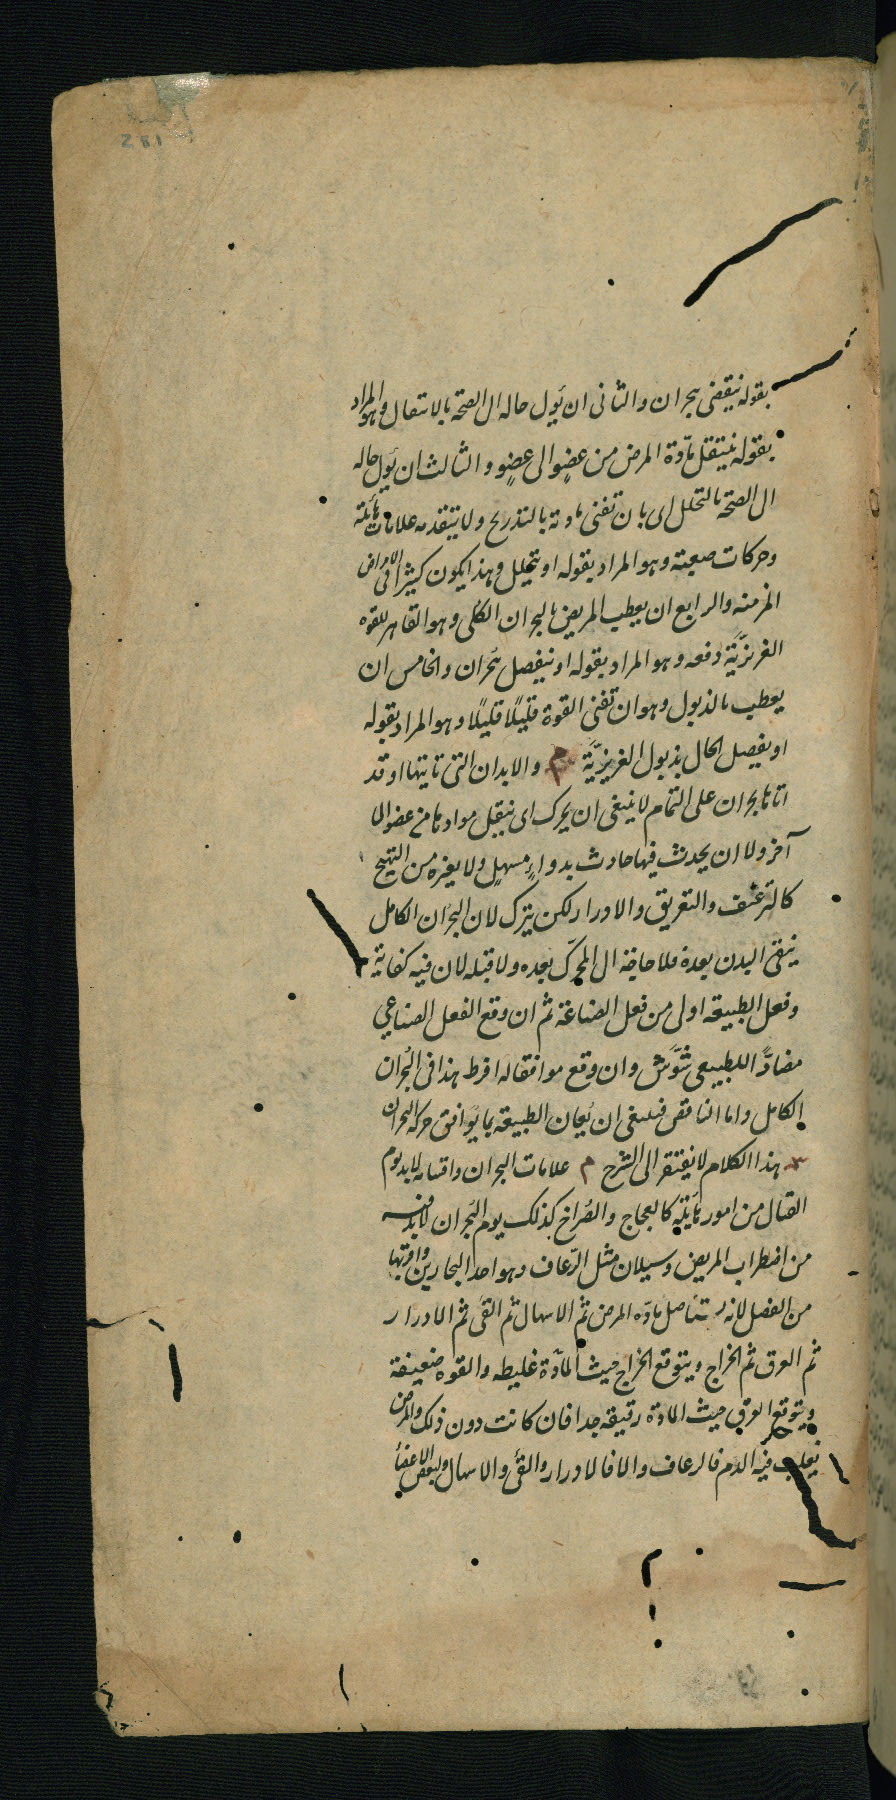 بقوله نیقضی ببحران والثانی ان یؤل حاله الی الصحة بالانتقال وهو المراد
بقوله ینتقل مادّة المرض من عضوٍ الی عضوٍ و الثالث ان یؤل حاله
الی الصحة بالتحلل ای بان تفنی مادته بالتدریج ولا یتقدمه علامات هائلة
وحرکات صعبته وهو المراد بقوله او یتحلل وهذا یکون کثیرا فی الامراض
المزمنه والرابع ان یعطب المریض بالبحران الکلی وهو القاهر للقوه
الغریزیّة دفعه وهو المراد بقوله او ینفصل ببُحران والخامس ان
یعطب بالذبول وهو ان تفنی القوة قلیلًا قلیلًا وهو المراد بقوله
او یفصل الحال بذبول الغریزیّة م والابدان التی تأیتها او قد
اتاها بحران علی التمام لا ینبغی ان یحرک ای ینقل موادها من عضو الی
آخر ولا ان یحدث فیها حادث بدواءٍ مسهلٍ ولا بغیره من التهیج
کالترعیف والتعریق والادرار لکن یترک لان البحران الکامل
ینقی البدن بعدة فلا حاجة الی المحرّک بعده ولا قبله لان فیه کفایة
وفعل الطبیعه اولی من فعل الصناعة ثم ان وقع الفعل الصناعی
مضادًّا للطبیعی شوّش وان وقع موافقا له افرط هذا فی البُحران
الکامل واما الناقص فینبغی ان یُعان الطبیعه بما یوافق حرکة البحران
ش هذا الکلام لا یفتقر الی الشرح م علامات البحران واقسامه لابد یوم
القتال من امور هائلة کالعجاج والصُراخ کذلک یوم البُحران لابد فیه
من اضطراب المریض وسیلان مثل الرّعاف وهو احد البحارین واقربها
من الفصل لانه یستأصل مادّه المرض ثم الاسهال ثم القئ ثم الادرار
ثم العرق ثم الخراج ویتوقع الخراج حیث المادّة غلیطه والقوه ضعیفة
ویتوقع العرق حیث المادة رقیقه جدا فان کانت دون ذلک والمرض
یغلب فیه الدم فالرعاف والا فالادرار والقئ والاسهال ولبعض الاعضأ